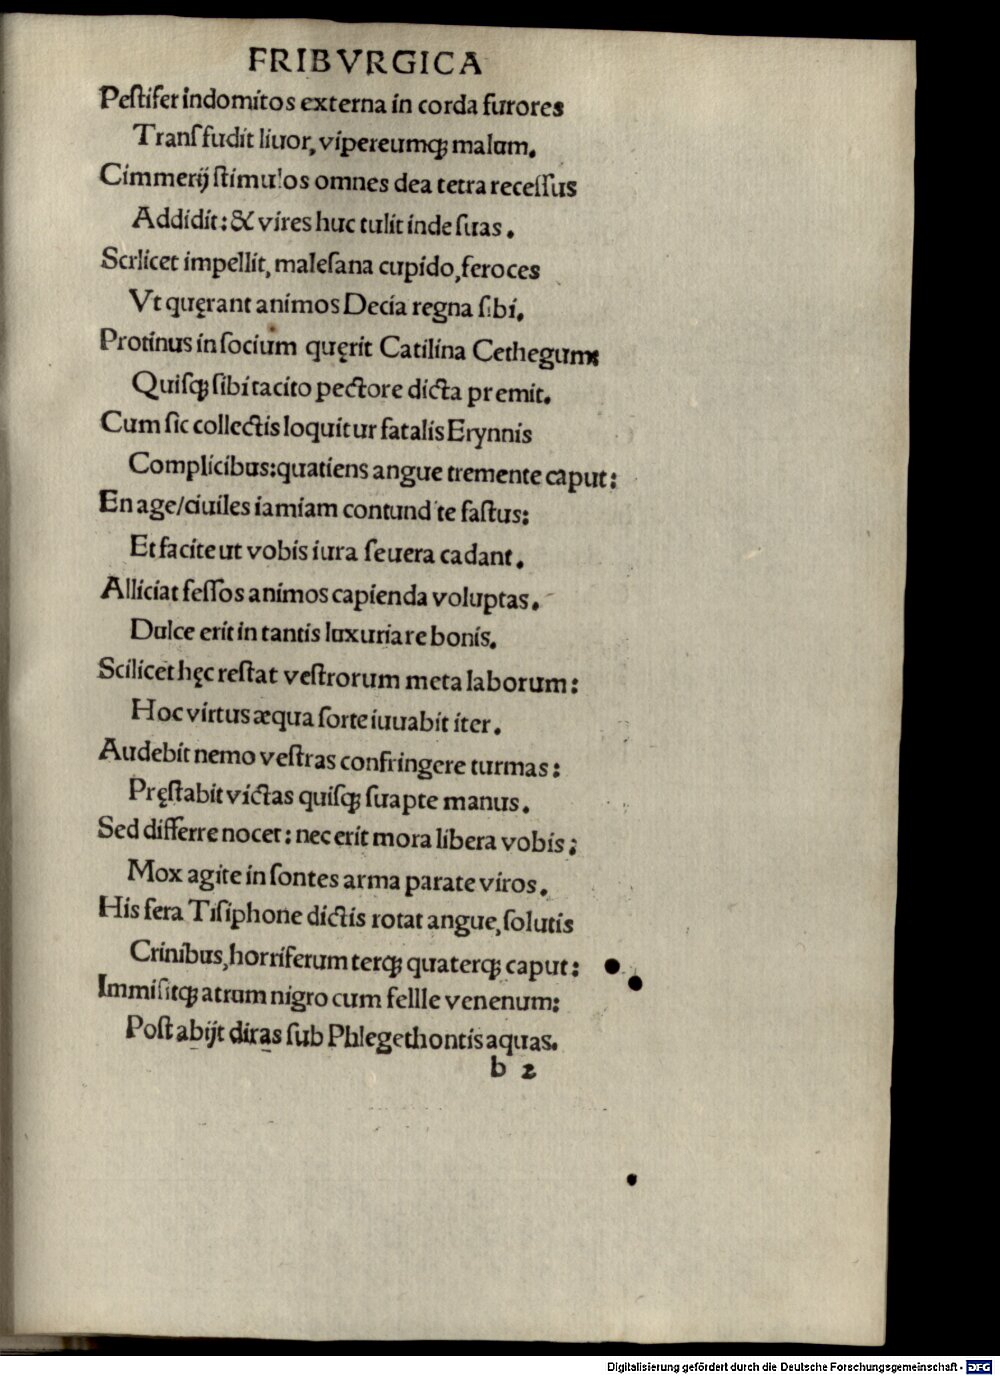 FRIBVRGICA
Peſtifer indomitos externa in corda furores
Tranſfudit liuor, vipereumq; malum.
Cimmerij ſtimulos omnes dea tetra receſſus
Addidit: & vires huc tulit inde ſuas.
Scrlicet impellit, maleſana cupido, feroces
Vt quęrant animos Decia regna ſibi,
Protinus in ſocium quęrit Catilina Cethegum:
Quiſq; ſibi tacito pectore dicta premit.
Cum ſic collectis loquitur fatalis Erynnis
Complicibus: quatiens angue tremente caput:
En age/ciuiles iamiam contund te faſtus:
Et facite ut vobis iura ſeuera cadant.
Alliciat feſſos animos capienda voluptas.
Dulce erit in tantis luxuriare bonis.
Scilicet hęc reſtat veſtrorum meta laborum:
Hoc virtus æqua ſorte iuuabit iter.
Audebit nemo veſtras confringere turmas:
Pręſtabit victas quiſq; ſuapte manus.
Sed differre nocet: nec erit mora libera vobis:
Mox agite in ſontes arma parate viros.
His fera Tiſiphone dictis rotat angue, ſolutis
Crinibus, horriferum terq; quaterq; caput:
Immiſitq; atrum nigro cum fellle venenum:
Poſt abijt diras ſub Phlegethontis aquas.
b 2
Digitalisierung gefördert durch die Deutsche Forschungsgemeinschaft - DFG